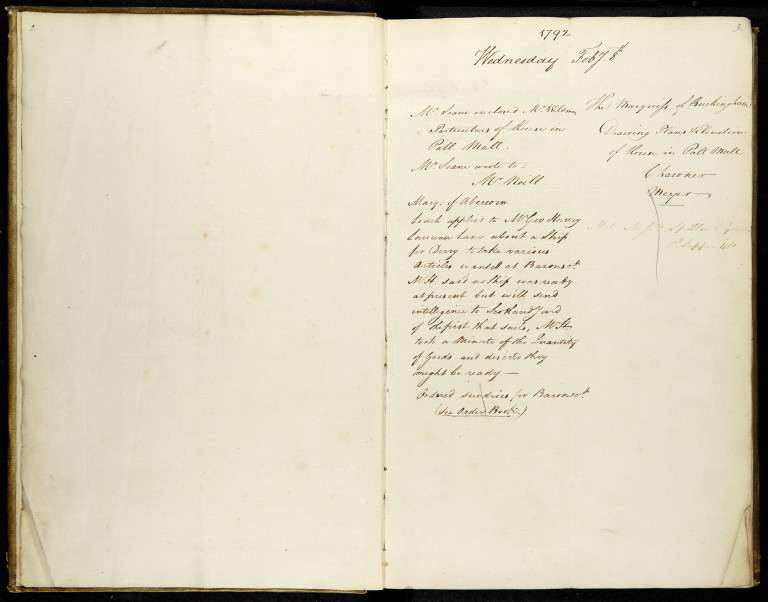 2
3.
1792
Wednesday Feby. 8th
Mr. Soane enclosed Mr.
Particulars of House in
Pall Mall.
Mr. Soane wrote to:
Mr. Neill.
Marq: of Abercorn
Leach applied to Mr. Geo Henry
Lane about a Ship
for Derry to take various
Articles wanted at Baronsct.
Mr H. said no ship was ready
at present but will send
intelligence to Scotland Yard
of the first that sails, Mr. H.
took a Minute of the Quantity
of Goods and desired they
might be ready —
Ordered sundries for Baronsct.
(See Order Book.)
The Marquiss of Buckingham:
Drawing Plans & Elevation
of House in Pall Mall
Chawner
Meyer